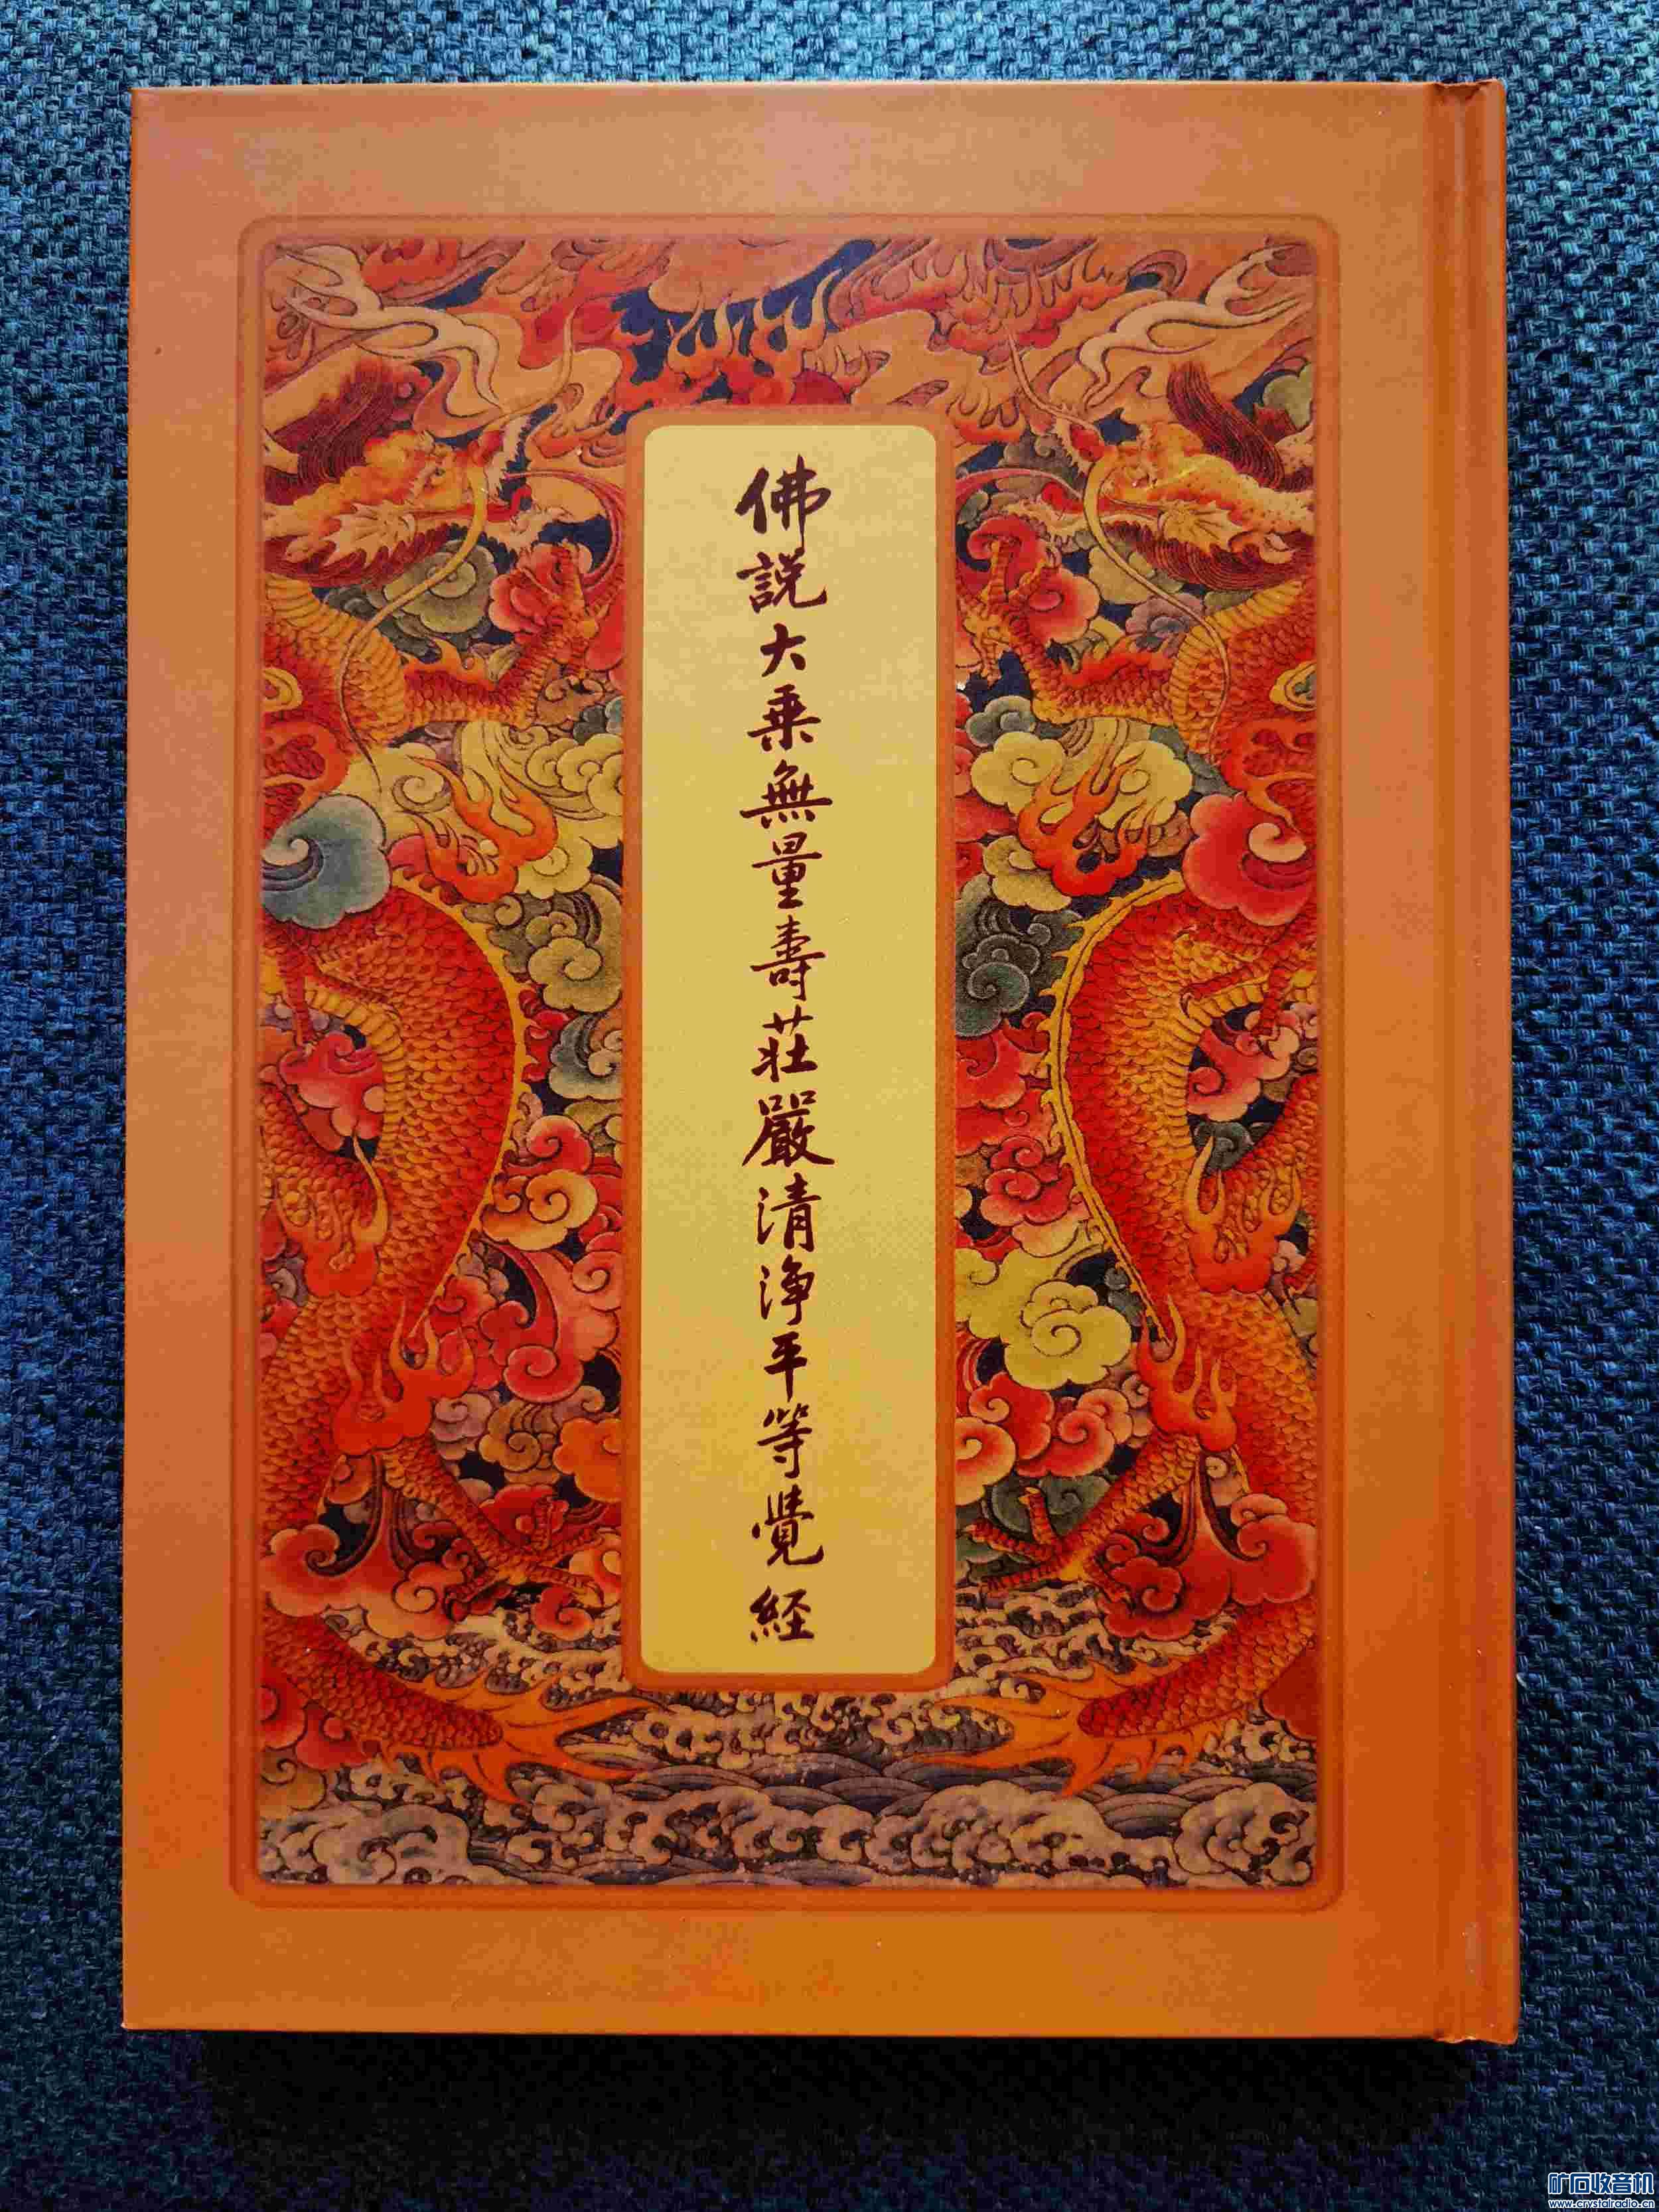 佛説大乗無量壽莊嚴清淨平等覺経
矿石收音机
www.crystalradio.cn